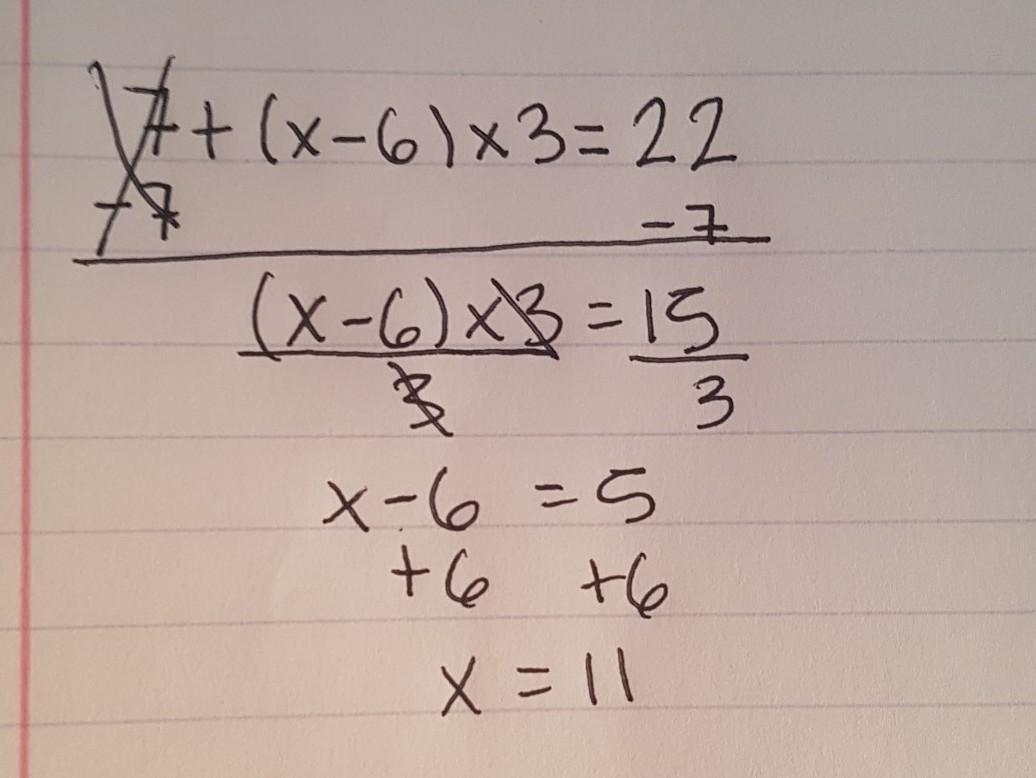 7 + (x - 6) x 3 = 22
-7 -7
(x - 6) x 3 = 15
3 3
x - 6 = 5
+6 +6
x = 11